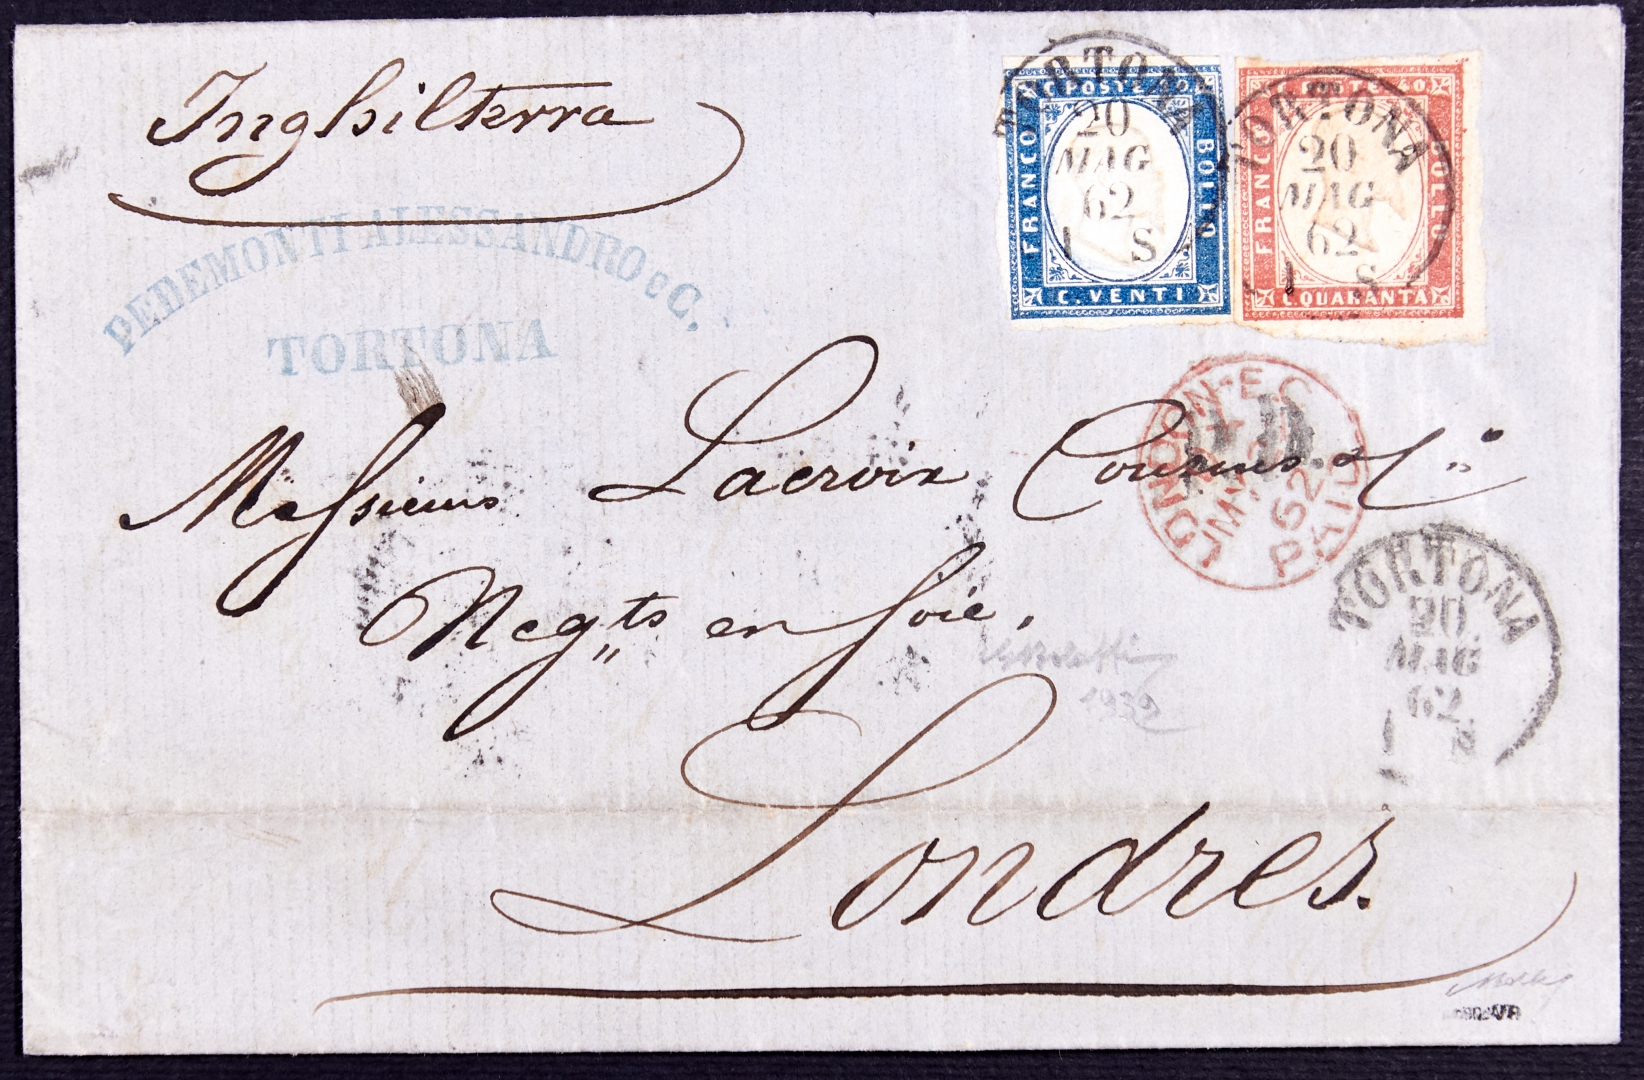 Inghilterra
PEDEMONTI ALESSANDRO e C.
TORTONA
C. POSTE 20
FRANCO
BOLLO
C. VENTI
FRANCO
BOLLO
C. QUARANTA
TORTONA
20
MAG
62
1 S
TORTONA
20
MAG
62
1 S
LONDON-E.C
MY
62
PAID
P.D.
Messieurs Lacroix Cousins & C.
Neg.ts en Soie.
Londres.
TORTONA
20
MAG
62
1 S
1932